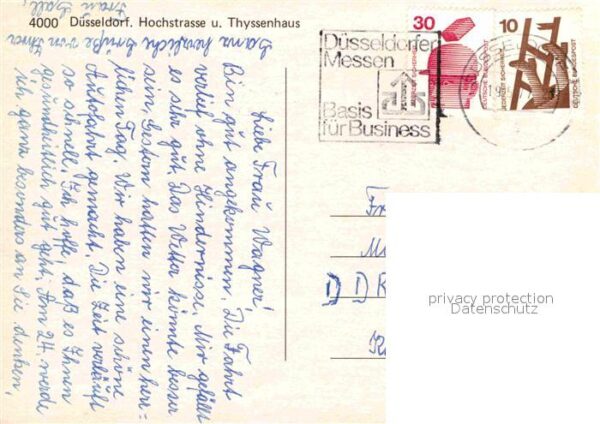 4000 Düsseldorf. Hochstrasse u. Thyssenhaus
30
10
DEUTSCHE BUNDESPOST
DEUTSCHE BUNDESPOST
Düsseldorfer
Messen
Basis
für Business
Liebe Frau Wagner!
Bin gut angekommen. Die Fahrt
verlief ohne Hindernisse. Mir gefällt
es sehr gut. Das Wetter könnte besser
sein. Gestern hatten wir einen herr-
lichen Tag. Wir haben eine schöne
Autofahrt gemacht. Die Zeit verläuft
so schnell. Ich hoffe, daß es Ihnen
gesundheitlich gut geht. Am 24. werde
ich ganz besonders an Sie denken.
Ganz herzliche Grüße von Ihrer
Frau
DDR
privacy protection
Datenschutz